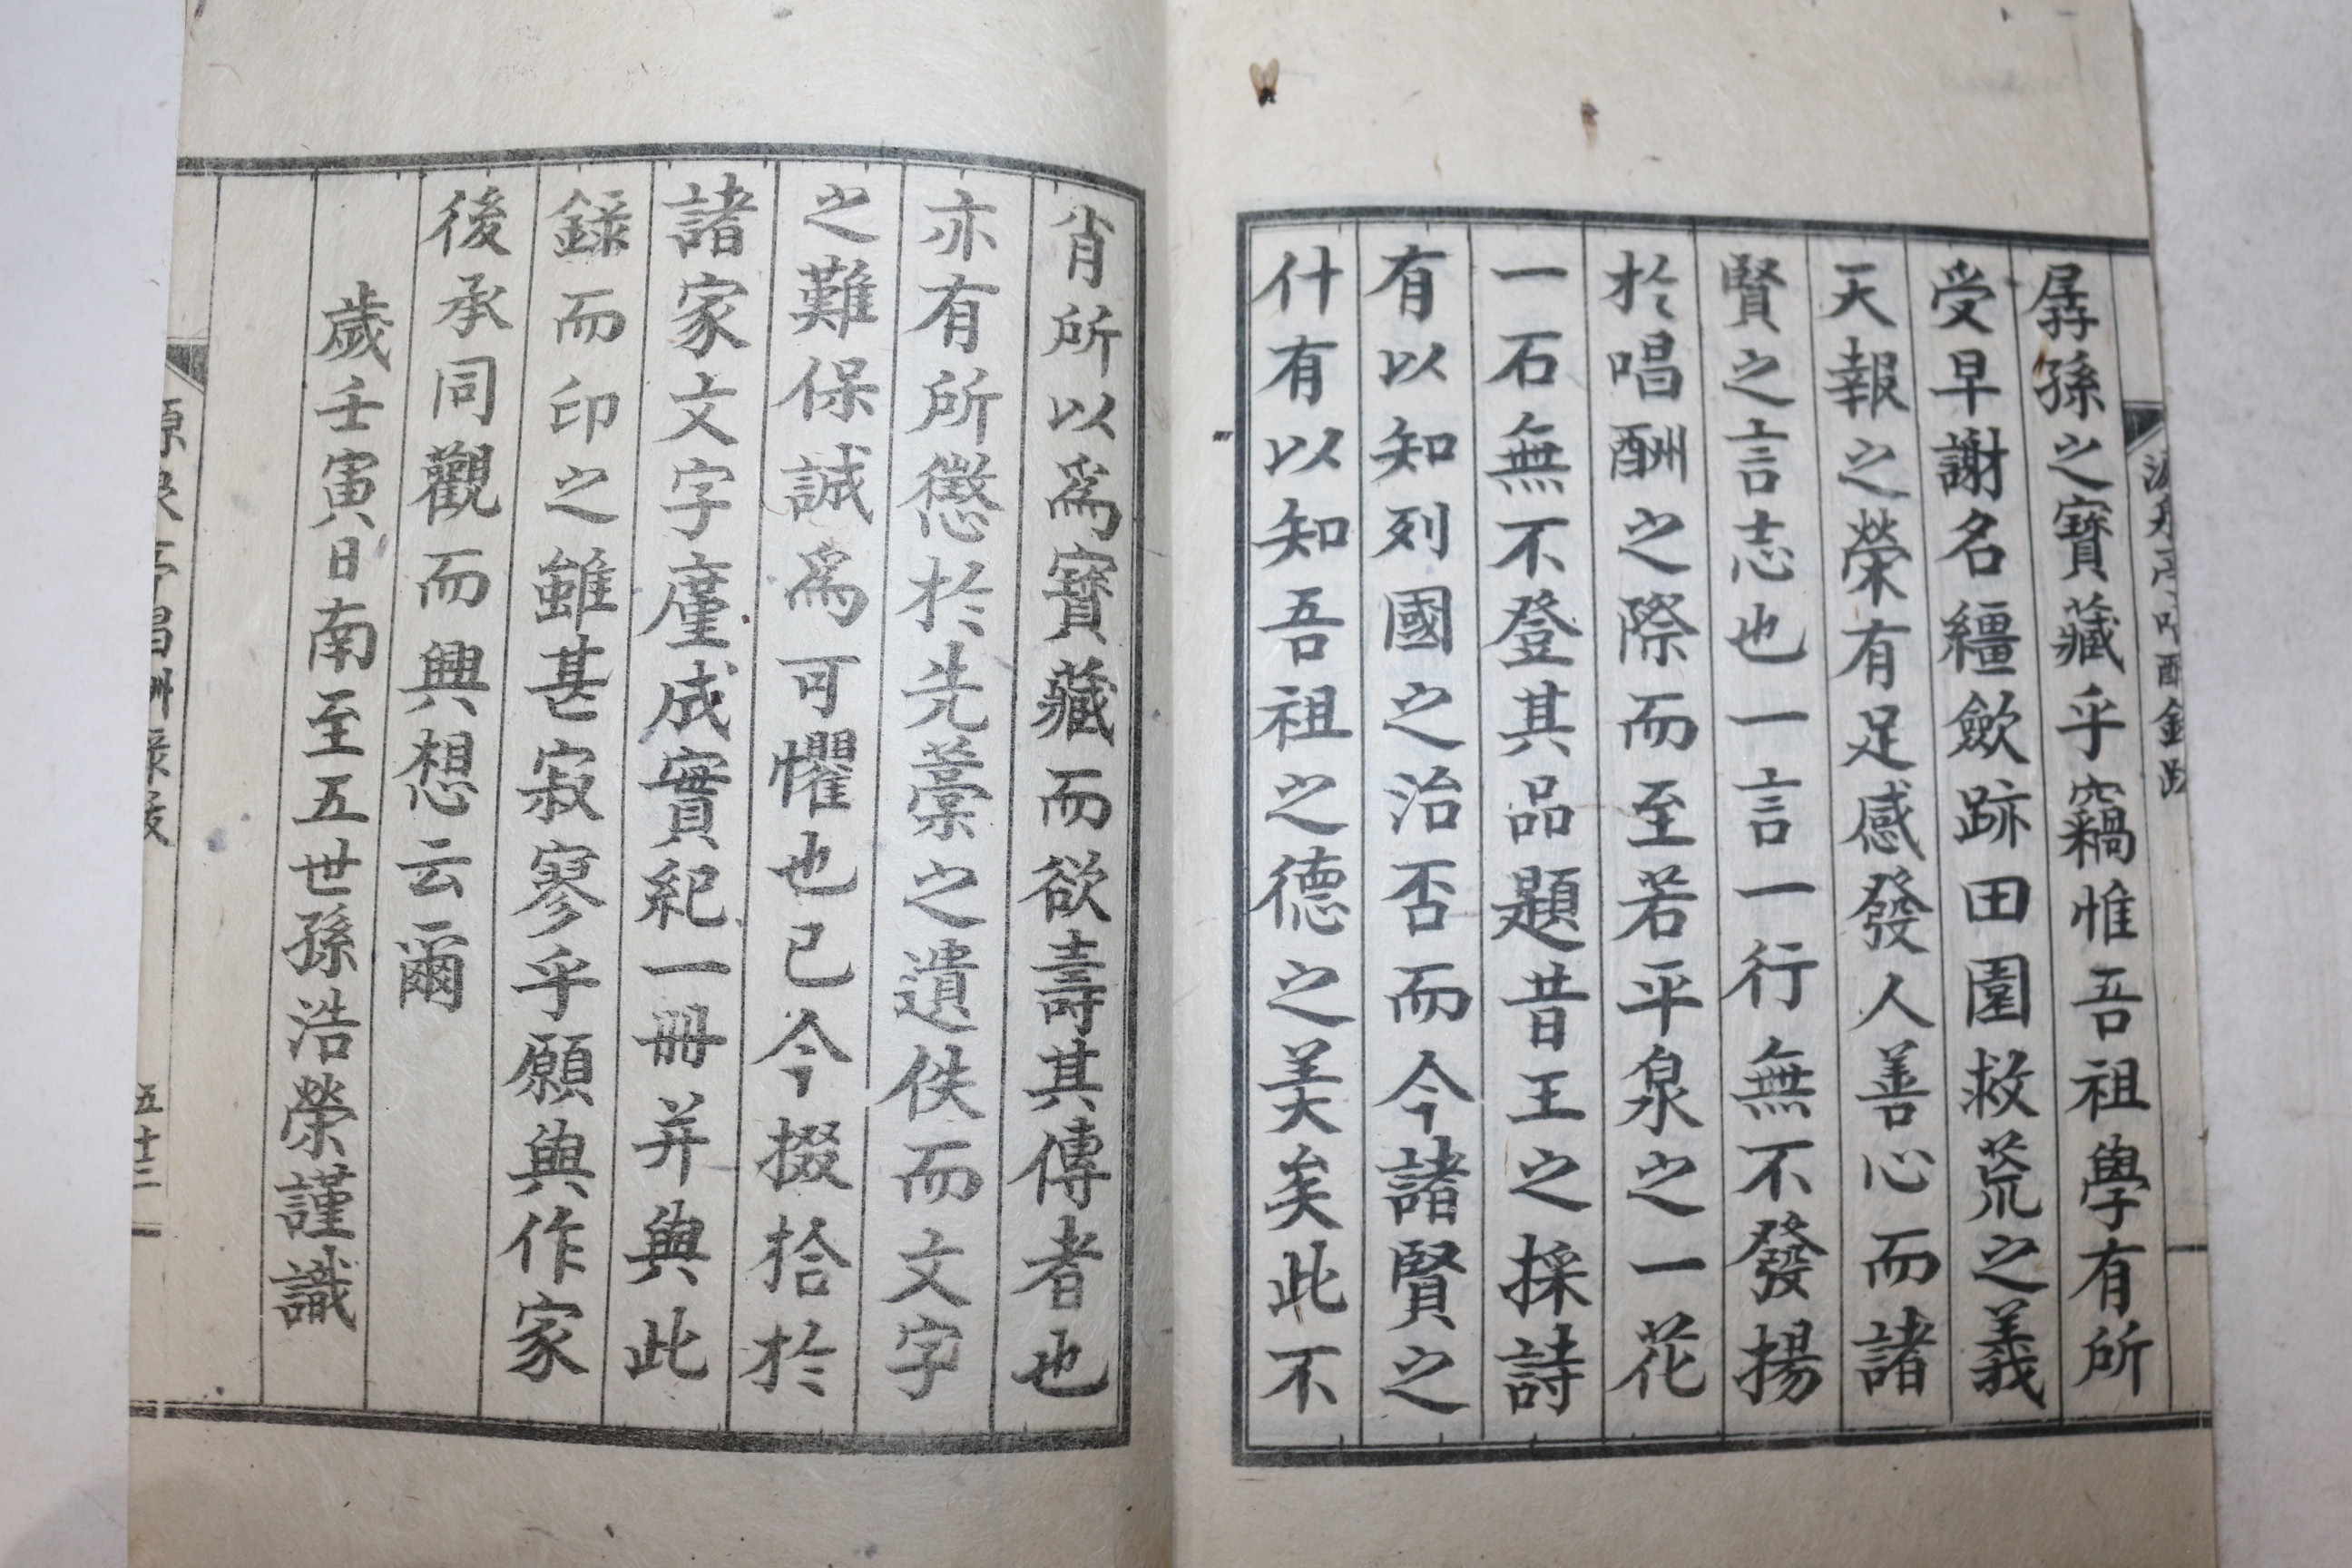 孱孫之寶藏乎竊惟吾祖學有所
受早謝名繮歛跡田園救荒之義
天報之榮有足感發人善心而諸
賢之言志也一言一行無不發揚
於唱酬之際而至若平泉之一花
一石無不登其品題昔王之採詩
有以知列國之治否而今諸賢之
什有以知吾祖之德之美矣此不
肖所以爲寶藏而欲壽其傳者也
亦有所懲於先藁之遺佚而文字
之難保誠爲可懼也已今掇拾於
諸家文字廑成實紀一冊并與此
錄而印之雖甚寂寥乎願與作家
後承同觀而興想云爾
歲壬寅日南至五世孫浩榮謹識
五十二